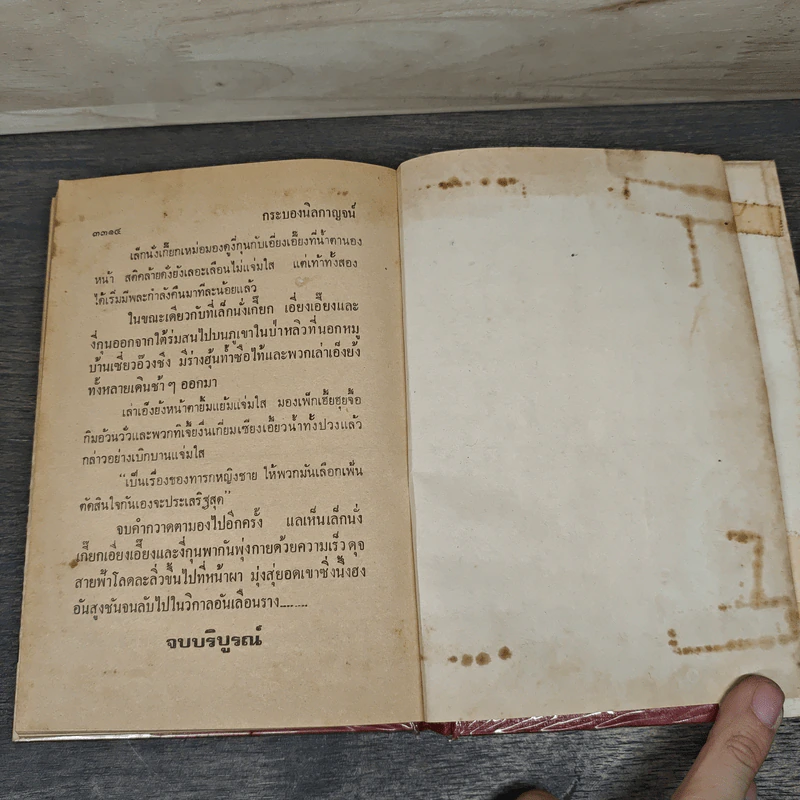 กระบองนิลกาญจน์
๓๓๑๔
เล็กนั่งเกี๊ยกเหม่อมองดูงี่กุนกับเอี่ยงเอี๊ยงที่น้ำตานอง
หน้า สติคล้ายดั่งยังเลอะเลือนไม่แจ่มใส แต่เท้าทั้งสอง
ได้เริ่มมีพละกำลังคืนมาทีละน้อยแล้ว
ในขณะเดียวกับที่เล็กนั่งเกี๊ยก เอี่ยงเอี๊ยงและ
งี่กุนออกจากใต้ร่มสนไปบนภูเขาในป่าหลิวที่นอกหมู่
บ้านเซี่ยวอ๊วงชึง มีร่างฮุ้นท้ำซือไท้และพวกเล่าเอ็งยัง
ทั้งหลายเดินช้า ๆ ออกมา
เล่าเอ็งยังหน้าตายิ้มแย้มแจ่มใส มองเพ็กเฮี้ยฮุยจื้อ
กิมอ้วนวั่วและพวกทิเจี้ยงื่นเกี่ยมเซียงเอี้ยวน้ำทั้งปวงแล้ว
กล่าวอย่างเบิกบานแจ่มใส
“เป็นเรื่องของทารกหญิงชาย ให้พวกมันเลือกเฟ้น
ตัดสินใจกันเองจะประเสริฐสุด”
จบคำกวาดตามองไปอีกครั้ง แลเห็นเล็กนั่ง
เกี๊ยกเอี่ยงเอี๊ยงและงี่กุนพากันพุ่งกายด้วยความเร็วดุจ
สายฟ้าโลดละลิ่วขึ้นไปที่หน้าผา มุ่งสู่ยอดเขาซึ่งนึ้งฮง
อันสูงชันจนลับไปในวิกาลอันเลือนราง........
จบบริบูรณ์